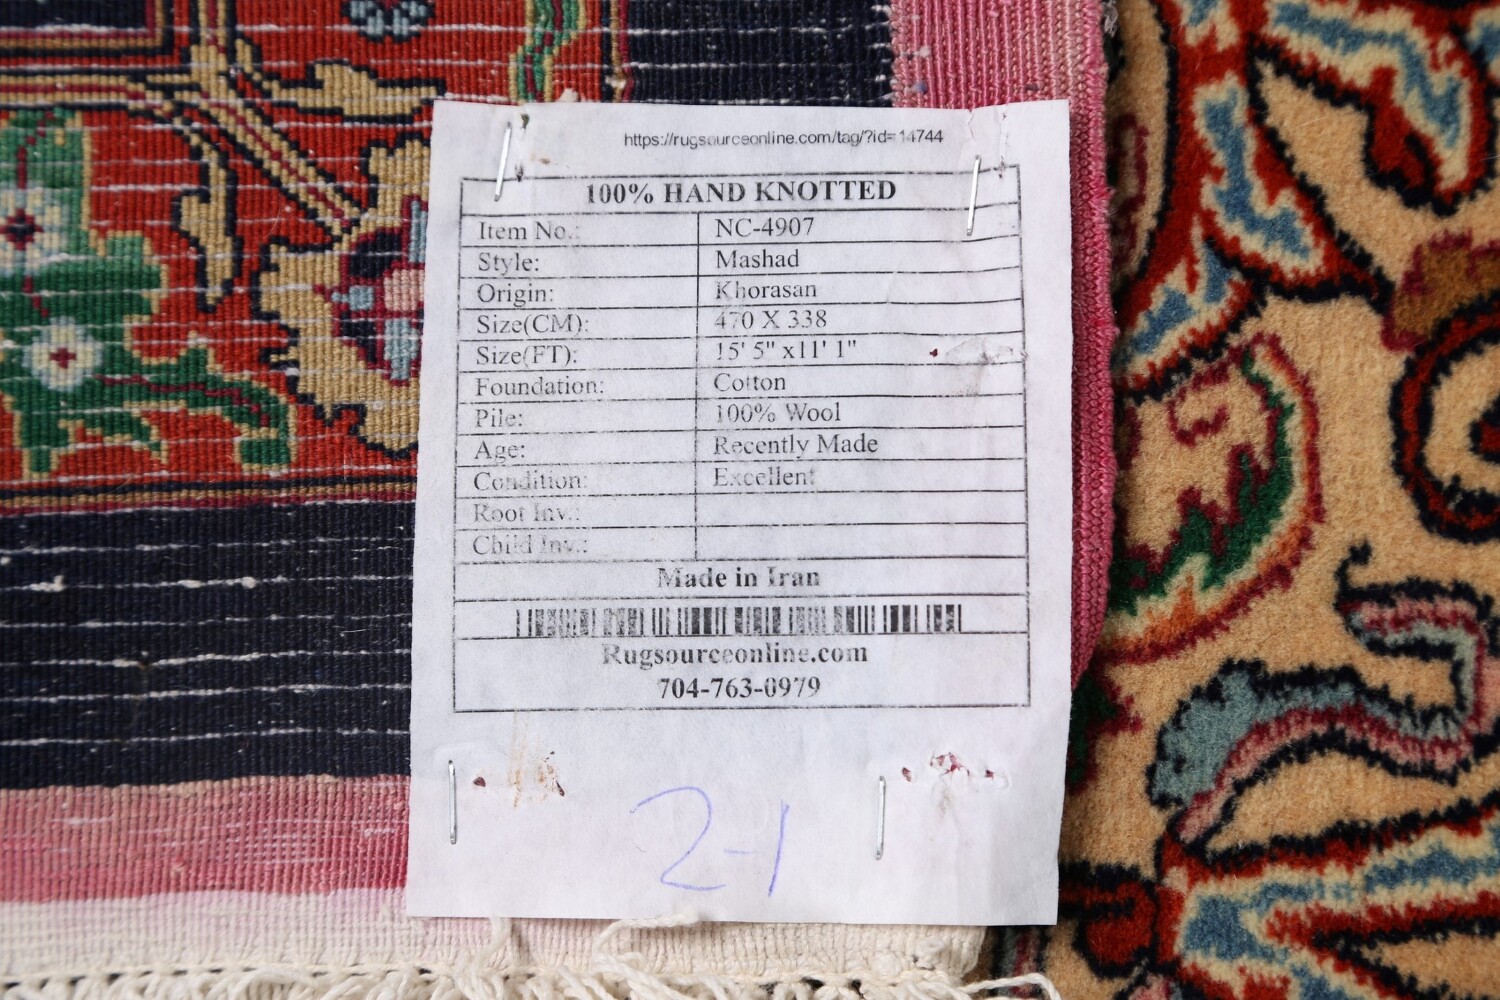 https://rugsourceonline.com/tag/?id=14744
100% HAND KNOTTED
Item No.: NC-4907
Style: Mashad
Origin: Khorasan
Size(CM): 470 X 338
Size(FT): 15' 5" x11' 1"
Foundation: Cotton
Pile: 100% Wool
Age: Recently Made
Condition: Excellent
Root Inv.:
Child Inv.:
Made in Iran
Rugsourceonline.com
704-763-0979
2-1